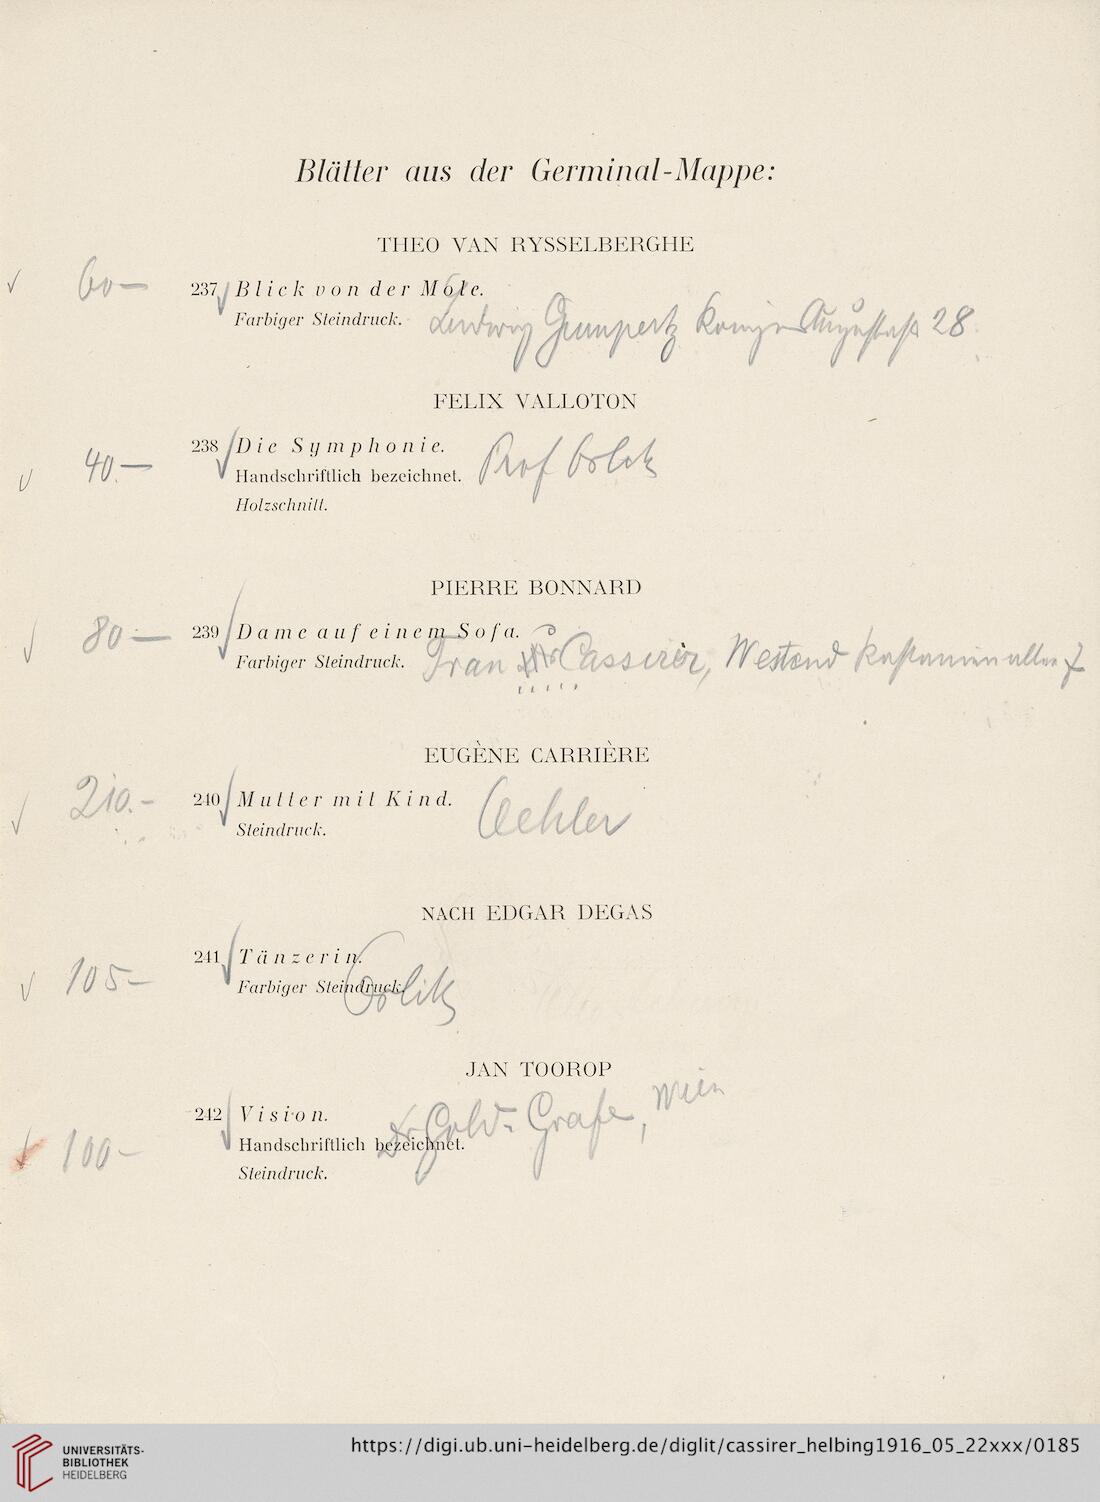 Blätter aus der Germinal-Mappe:
THEO VAN RYSSELBERGHE
60— 237 Blick von der Môle.
Farbiger Steindruck. Ludwig Gumpertz 28
FELIX VALLOTON
40.— 238 Die Symphonie.
Handschriftlich bezeichnet. Prof Orlik
Holzschnitt.
PIERRE BONNARD
80— 239 Dame auf einem Sofa.
Farbiger Steindruck. Frau Cassirer, Westend Kastanienallee
EUGÈNE CARRIÈRE
210.– 240 Mutter mit Kind. Oehler
Steindruck.
NACH EDGAR DEGAS
105– 241 Tänzerin.
Farbiger Steindruck. Orlik
JAN TOOROP
242 Vision. Dr Gold- Grafe, Wien
100– Handschriftlich bezeichnet.
Steindruck.
UNIVERSITÄTS-
BIBLIOTHEK
HEIDELBERG
https://digi.ub.uni-heidelberg.de/diglit/cassirer_helbing1916_05_22xxx/0185